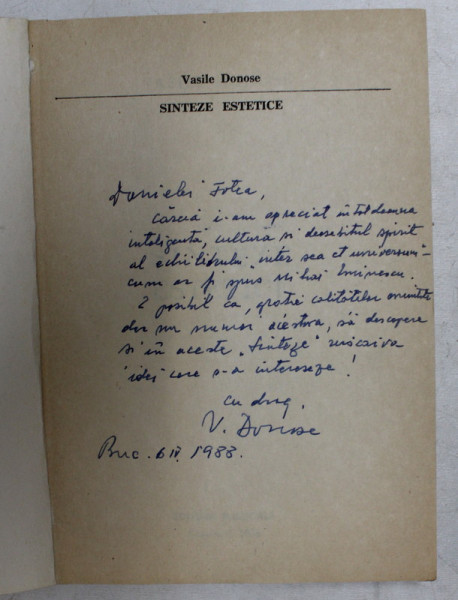 Vasile Donose
SINTEZE ESTETICE
Danielei Fotea,
căreia i-am apreciat întotdeauna
inteligența, cultura și deosebitul spirit
al echilibrului "inter sea et universum" -
cum ar fi spus Mihai Eminescu.
E posibil ca, grație calităților amintite
dar nu numai acestora, să descopere
și în aceste „Sinteze"
idei care s-o intereseze!
cu drag,
V. Donose
Buc. 6 IV. 1988.